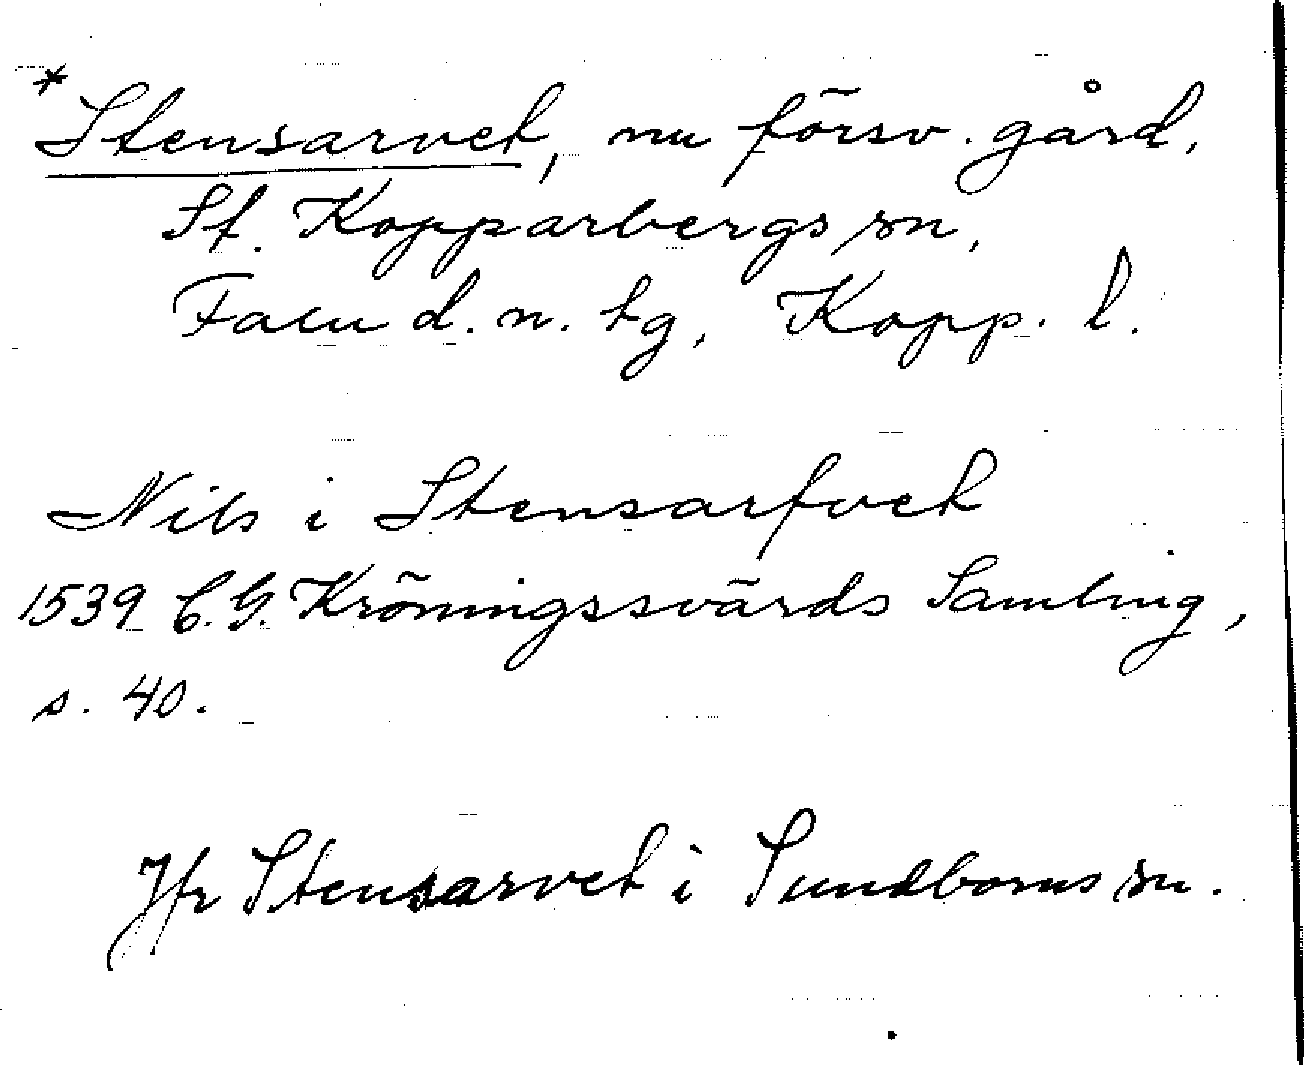 *Stensarvet, nu försv. gård,
St. Kopparbergs sn,
Falu d. n. tg, Kopp. l.
Nils i Stensarfvet
1539 C.G. Kröningssvärds Samling,
s. 40.
Jfr Stensarvet i Sundborns sn.